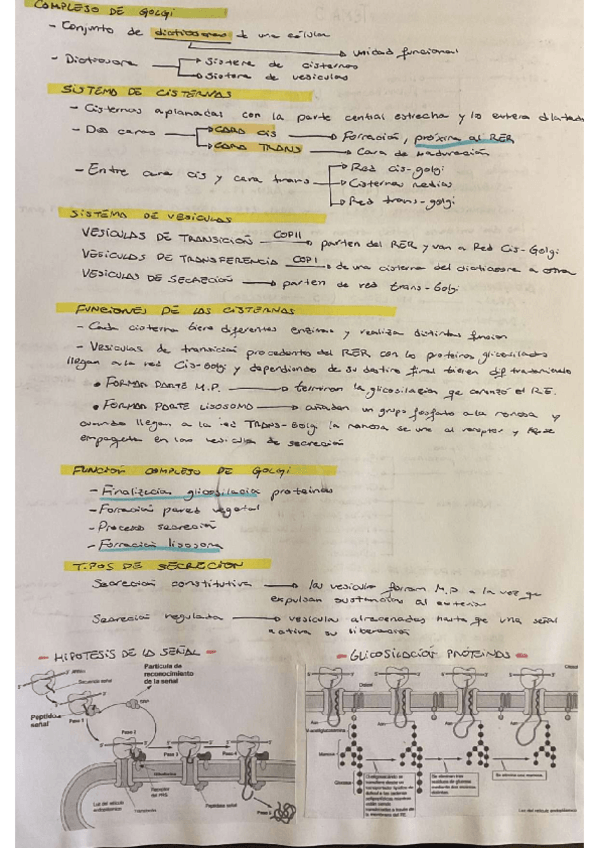 COMPLEJO DE GOLGI
- Conjunto de dictiosomas d una célula
unidad funcional
- Dictiosoma
Sistema de cisternas
Sistema de vesículas
SISTEMA DE CISTERNAS
- Cisternas aplanadas con la parte central estrecha y lo externo dilatado
- Dos caras
CARA CIS
Formación, próxima al RER
CARA TRANS
Cara de maduración
- Entre cara cis y cara trans
Red cis-golgi
Cisternas medias
Red trans-golgi
SISTEMA DE VESICULAS
VESÍCULAS DE TRANSICIÓN
COPII
parten del RER y van a Red Cis-Golgi
VESÍCULAS DE TRANSFERENCIA
COPI
de una cisterna del dictiosoma a otra
VESÍCULAS DE SECRECIÓN
parten de red trans-Golgi
FUNCIONES DE LAS CISTERNAS
- Cada cisterna tiene diferentes enzimas y realiza distintas funcion
- Vesículas de transición procedentes del RER con las proteínas glicosiladas
llegan a la red Cis-Golgi y dependiendo de su destino final tienen dif
• FORMAN PARTE M.P.
terminan la glicosilación que comenzó el RE.
• FORMAN PARTE LISOSOMA
añaden un grupo fosfato a la manosa y
cuando llegan a la red TRANS-Golgi la manosa se une al receptor y
empaqueta en las vesículas de secreción
FUNCIÓN COMPLEJO DE GOLGI
- Finalización glicosilación proteínas
- Formación pared vegetal
- Proceso secreción
- Formación lisosoma
TIPOS DE SECRECION
Secreción constitutiva
las vesículas forman M.P a la vez que
expulsan sustancias al exterior
Secreción regulada
vesículas almacenadas hasta que una señal
activa su liberación
- HIPOTESIS DE LA SEÑAL -
- GLICOSILACIÓN PROTEINAS -
Partícula de
reconocimiento
de la señal
Secuencia señal
Péptido
señal
Paso 1
Paso 2
Paso 3
Paso 4
Receptor
Péptido señal
Lúz del retículo
endoplásmico
Citosol
Asn
Asn
Asn
Manosa
Glucosa
Se elimina una manosa
Luz del retículo endoplásmico